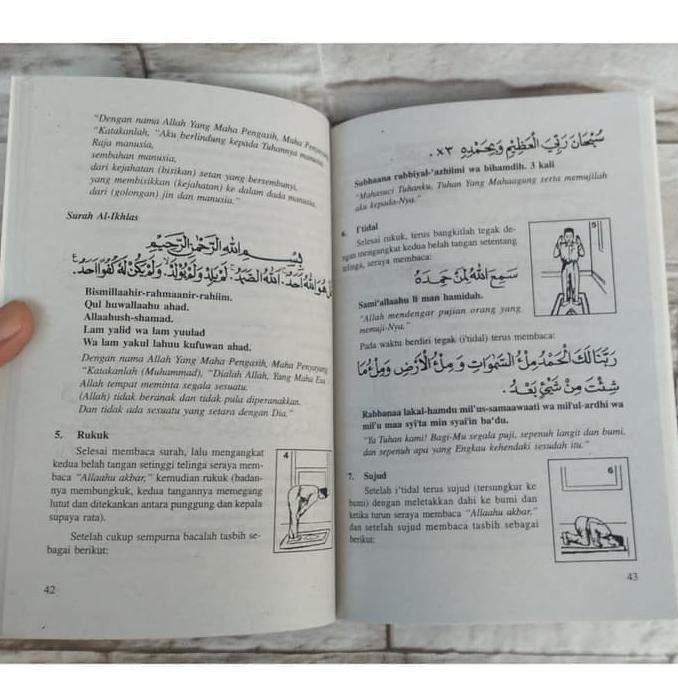 "Dengan nama Allah Yang Maha Pengasih, Maha Penyayang
"Katakanlah, "Aku berlindung kepada Tuhannya manusia,
Raja manusia,
sembahan manusia,
dari kejahatan (bisikan) setan yang bersembunyi,
yang membisikkan (kejahatan) ke dalam dada manusia,
dari (golongan) jin dan manusia."
Surah Al-Ikhlas
بِسْمِ اللهِ الرَّحْمٰنِ الرَّحِيْمِ
هُوَ اللهُ اَحَدٌ. اَللهُ الصَّمَدُ. لَمْ يَلِدْ وَلَمْ يُوْلَدْ. وَلَمْ يَكُنْ لَهُ كُفُوًا اَحَدٌ.
Bismillaahir-rahmaanir-rahiim.
Qul huwallaahu ahad.
Allaahush-shamad.
Lam yalid wa lam yuulad
Wa lam yakul lahuu kufuwan ahad.
Dengan nama Allah Yang Maha Pengasih, Maha Penyayang
"Katakanlah (Muhammad), "Dialah Allah, Yang Maha Esa
Allah tempat meminta segala sesuatu.
(Allah) tidak beranak dan tidak pula diperanakkan.
Dan tidak ada sesuatu yang setara dengan Dia."
5. Rukuk
Selesai membaca surah, lalu mengangkat
kedua belah tangan setinggi telinga seraya mem-
baca "Allaahu akbar," kemudian rukuk (badan-
nya membungkuk, kedua tangannya memegang
lutut dan ditekankan antara punggung dan kepala
supaya rata).
Setelah cukup sempurna bacalah tasbih se-
bagai berikut:
4
42
سُبْحَانَ رَبِّيَ الْعَظِيْمِ وَبِحَمْدِهِ ×٣.
Subhaana rabbiyal-'azhiimi wa bihamdih. 3 kali
"Mahasuci Tuhanku, Tuhan Yang Mahaagung serta memujilah
aku kepada-Nya."
6. I'tidal
Selesai rukuk, terus bangkitlah tegak de-
ngan mengangkat kedua belah tangan setentang
telinga, seraya membaca:
5
سَمِعَ اللهُ لِمَنْ حَمِدَهُ
Sami'allaahu li man hamidah.
"Allah mendengar pujian orang yang
memuji-Nya."
Pada waktu berdiri tegak (i'tidal) terus membaca:
رَبَّنَا لَكَ الْحَمْدُ مِلْءُ السَّمٰوَاتِ وَمِلْءُ الْاَرْضِ وَمِلْءُ مَا
شِئْتَ مِنْ شَيْئٍ بَعْدُ.
Rabbanaa lakal-hamdu mil'us-samaawaati wa mil'ul-ardhi wa
mil'u maa syi'ta min syai'in ba'du.
"Ya Tuhan kami! Bagi-Mu segala puji, sepenuh langit dan bumi,
dan sepenuh apa yang Engkau kehendaki sesudah itu."
7. Sujud
Setelah i'tidal terus sujud (tersungkur ke
bumi) dengan meletakkan dahi ke bumi dan
ketika turun seraya membaca "Allaahu akbar,"
dan setelah sujud membaca tasbih sebagai
berikut:
6
43